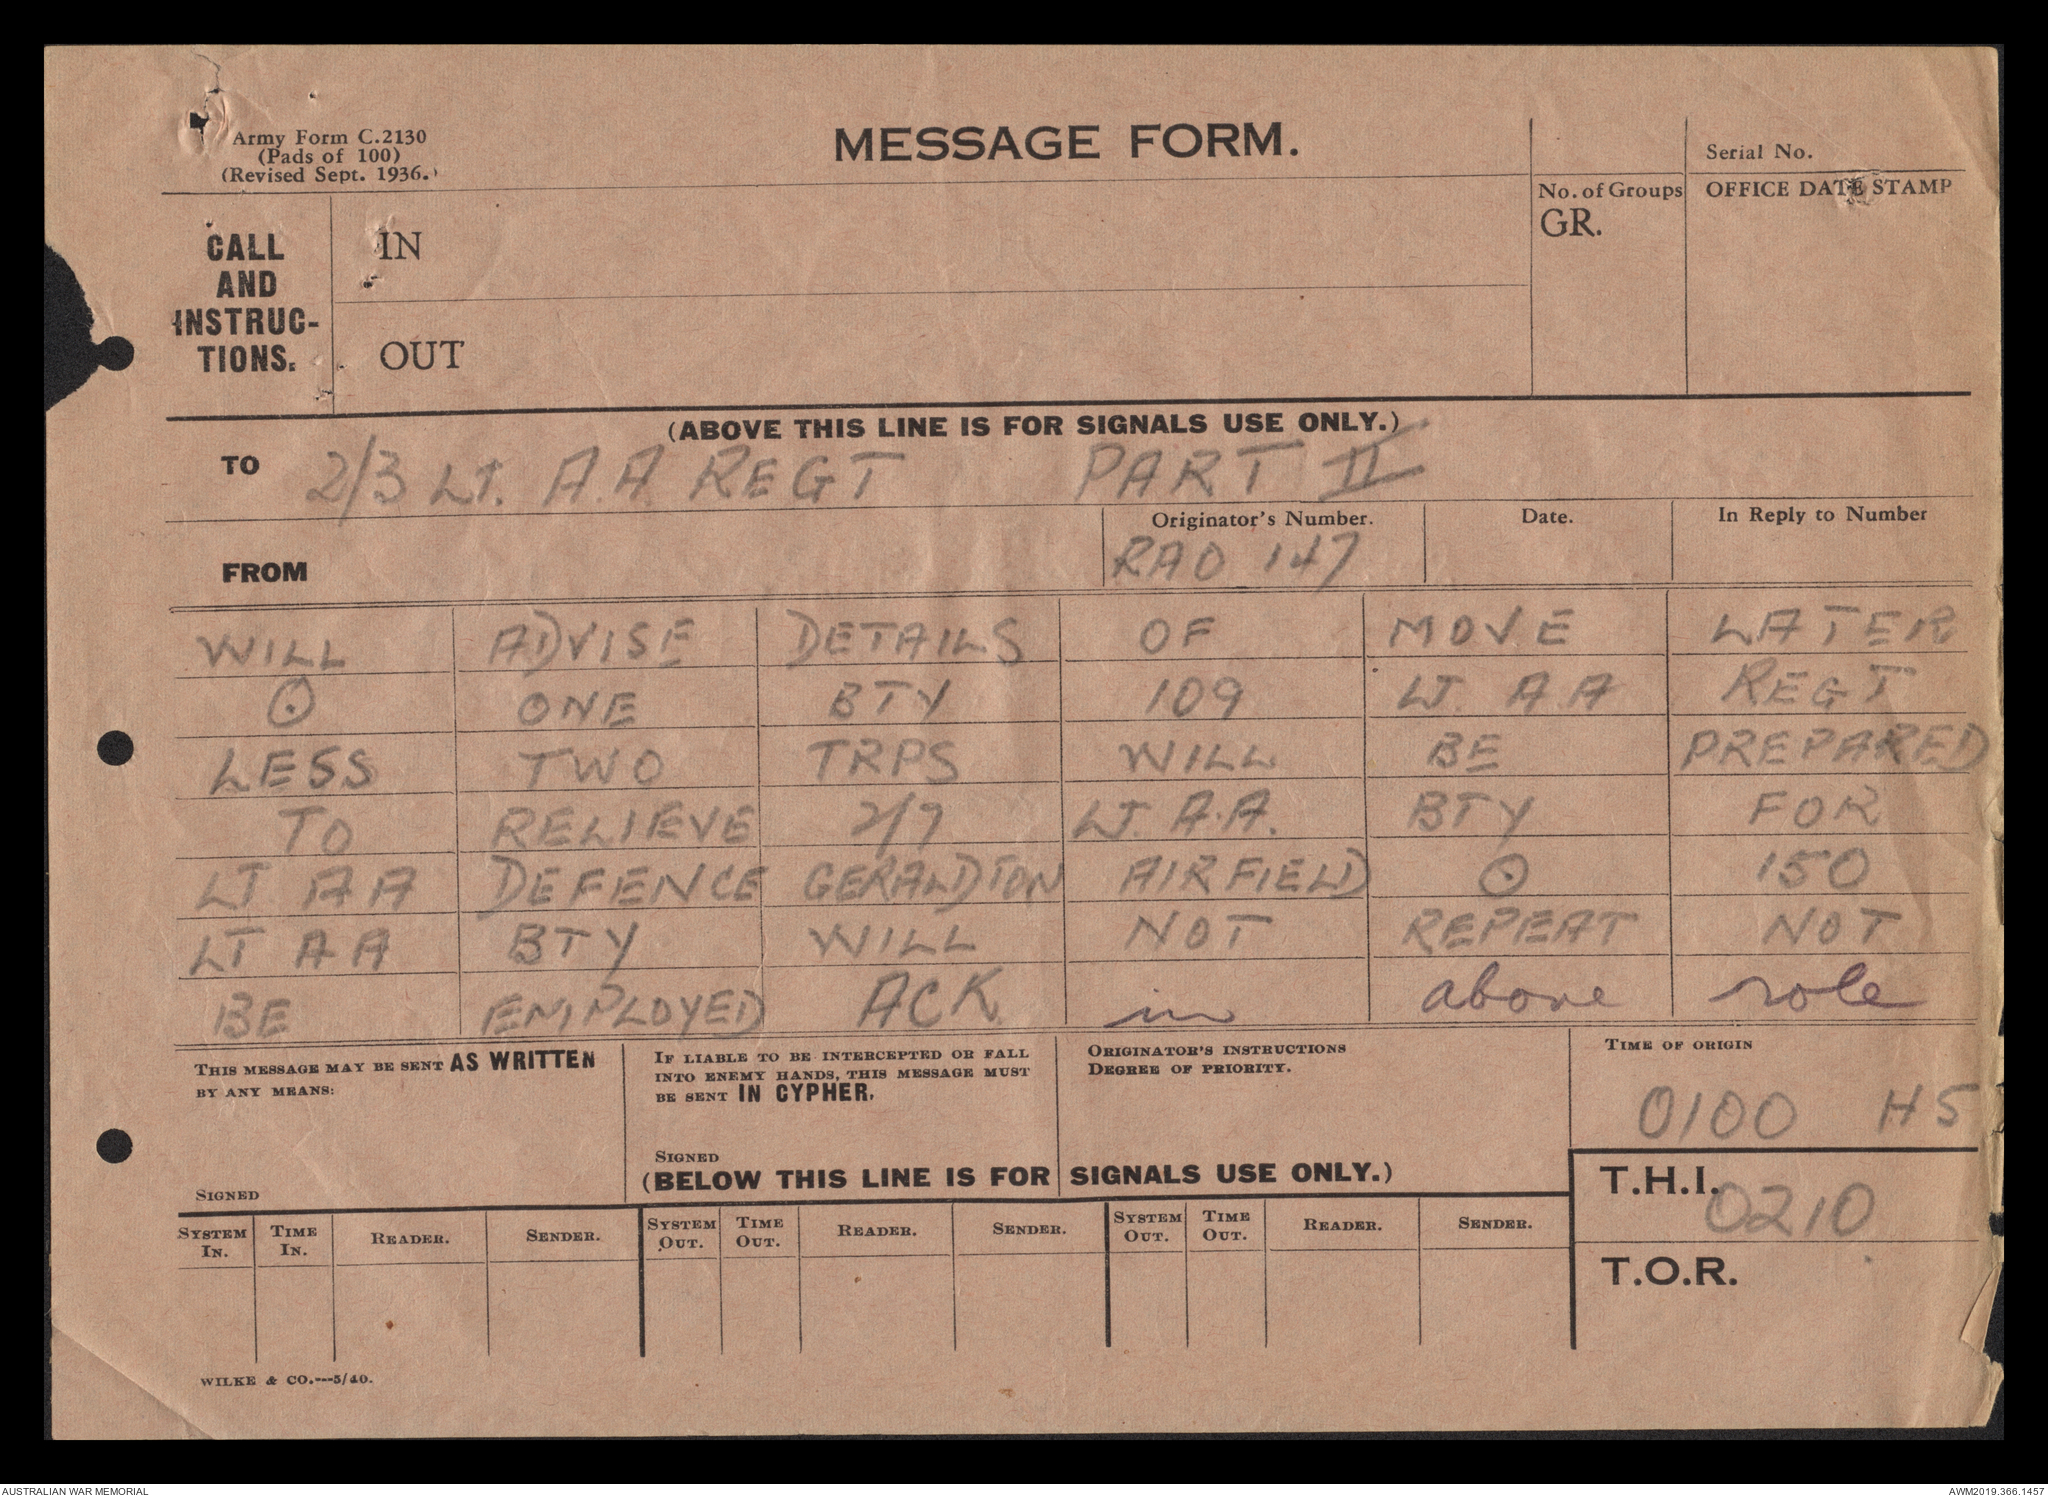 Army Form C.2130
(Pads of 100)
(Revised Sept. 1936.)
MESSAGE FORM.
Serial No.
No. of Groups
GR.
OFFICE DATE STAMP
CALL
AND
INSTRUC-
TIONS.
IN
OUT
(ABOVE THIS LINE IS FOR SIGNALS USE ONLY.)
TO 2/3 LT. A.A. REGT PART II
FROM
Originator's Number.
RAO 147
Date.
In Reply to Number
WILL ADVISE DETAILS OF MOVE LATER
⊙ ONE BTY 109 LT. AA REGT
LESS TWO TRPS WILL BE PREPARED
TO RELIEVE 2/7 LT. A.A. BTY FOR
LT AA DEFENCE GERALDTON AIRFIELD ⊙ 150
LT AA BTY WILL NOT REPEAT NOT
BE EMPLOYED ACK in above role
THIS MESSAGE MAY BE SENT AS WRITTEN
BY ANY MEANS:
SIGNED
IF LIABLE TO BE INTERCEPTED OR FALL
INTO ENEMY HANDS, THIS MESSAGE MUST
BE SENT IN CYPHER.
SIGNED
ORIGINATOR'S INSTRUCTIONS
DEGREE OF PRIORITY.
TIME OF ORIGIN
0100 HS
(BELOW THIS LINE IS FOR SIGNALS USE ONLY.)
T.H.I. 0210
T.O.R.
SYSTEM IN. TIME IN. READER. SENDER. SYSTEM OUT. TIME OUT. READER. SENDER. SYSTEM OUT. TIME OUT. READER. SENDER.
WILKE & CO.---5/40.
AUSTRALIAN WAR MEMORIAL
AWM2019.366.1457